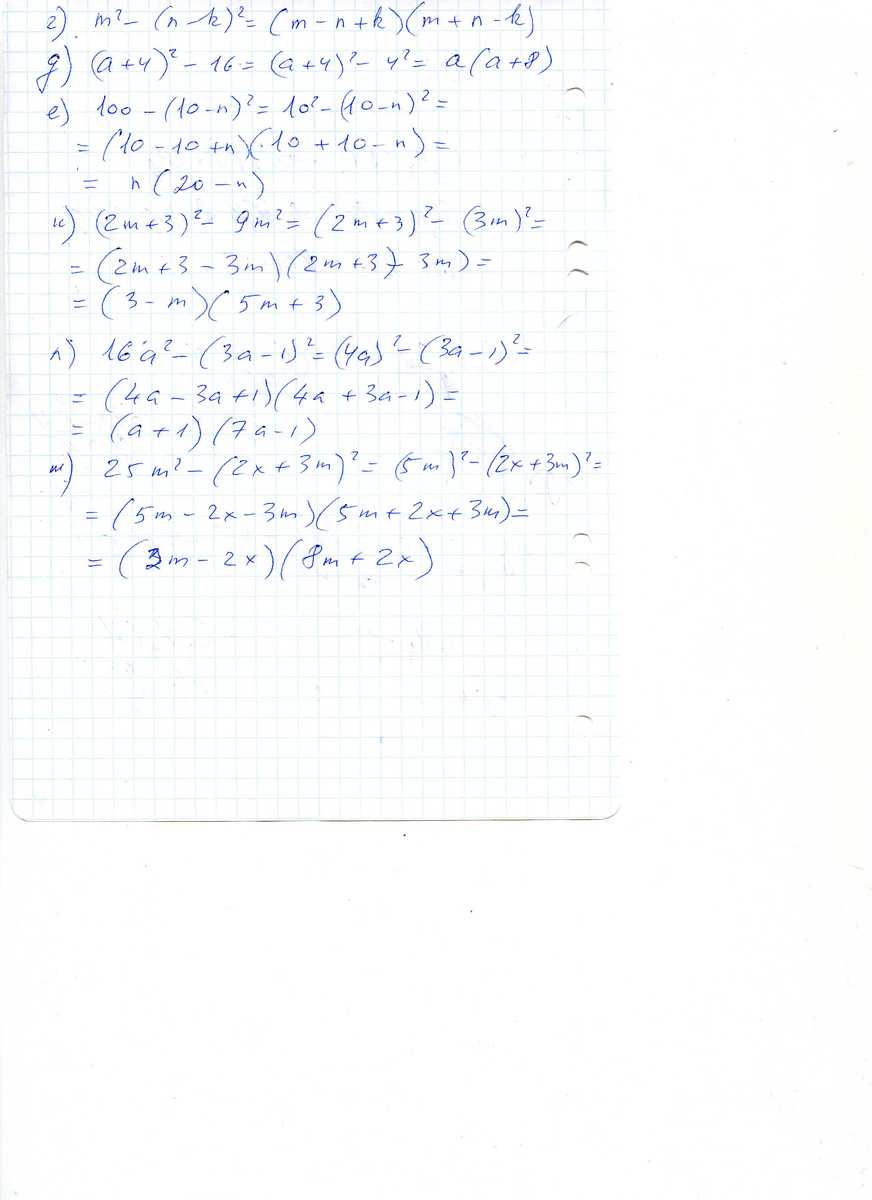 г) m² - (n - k)² = (m - n + k)(m + n - k)
д) (a+4)² - 16 = (a+4)² - 4² = a(a+8)
е) 100 - (10-n)² = 10² - (10-n)² =
= (10 - 10 + n)(10 + 10 - n) =
= n(20 - n)
к) (2m+3)² - 9m² = (2m+3)² - (3m)² =
= (2m+3 - 3m)(2m+3)- 3m) =
= (3 - m)(5m + 3)
л) 16a² - (3a-1)² = (4a)² - (3a-1)² =
= (4a - 3a + 1)(4a + 3a - 1) =
= (a+1)(7a-1)
м) 25m² - (2x+3m)² = (5m)² - (2x+3m)² =
= (5m - 2x - 3m)(5m + 2x + 3m) =
= (2m - 2x)(8m + 2x)